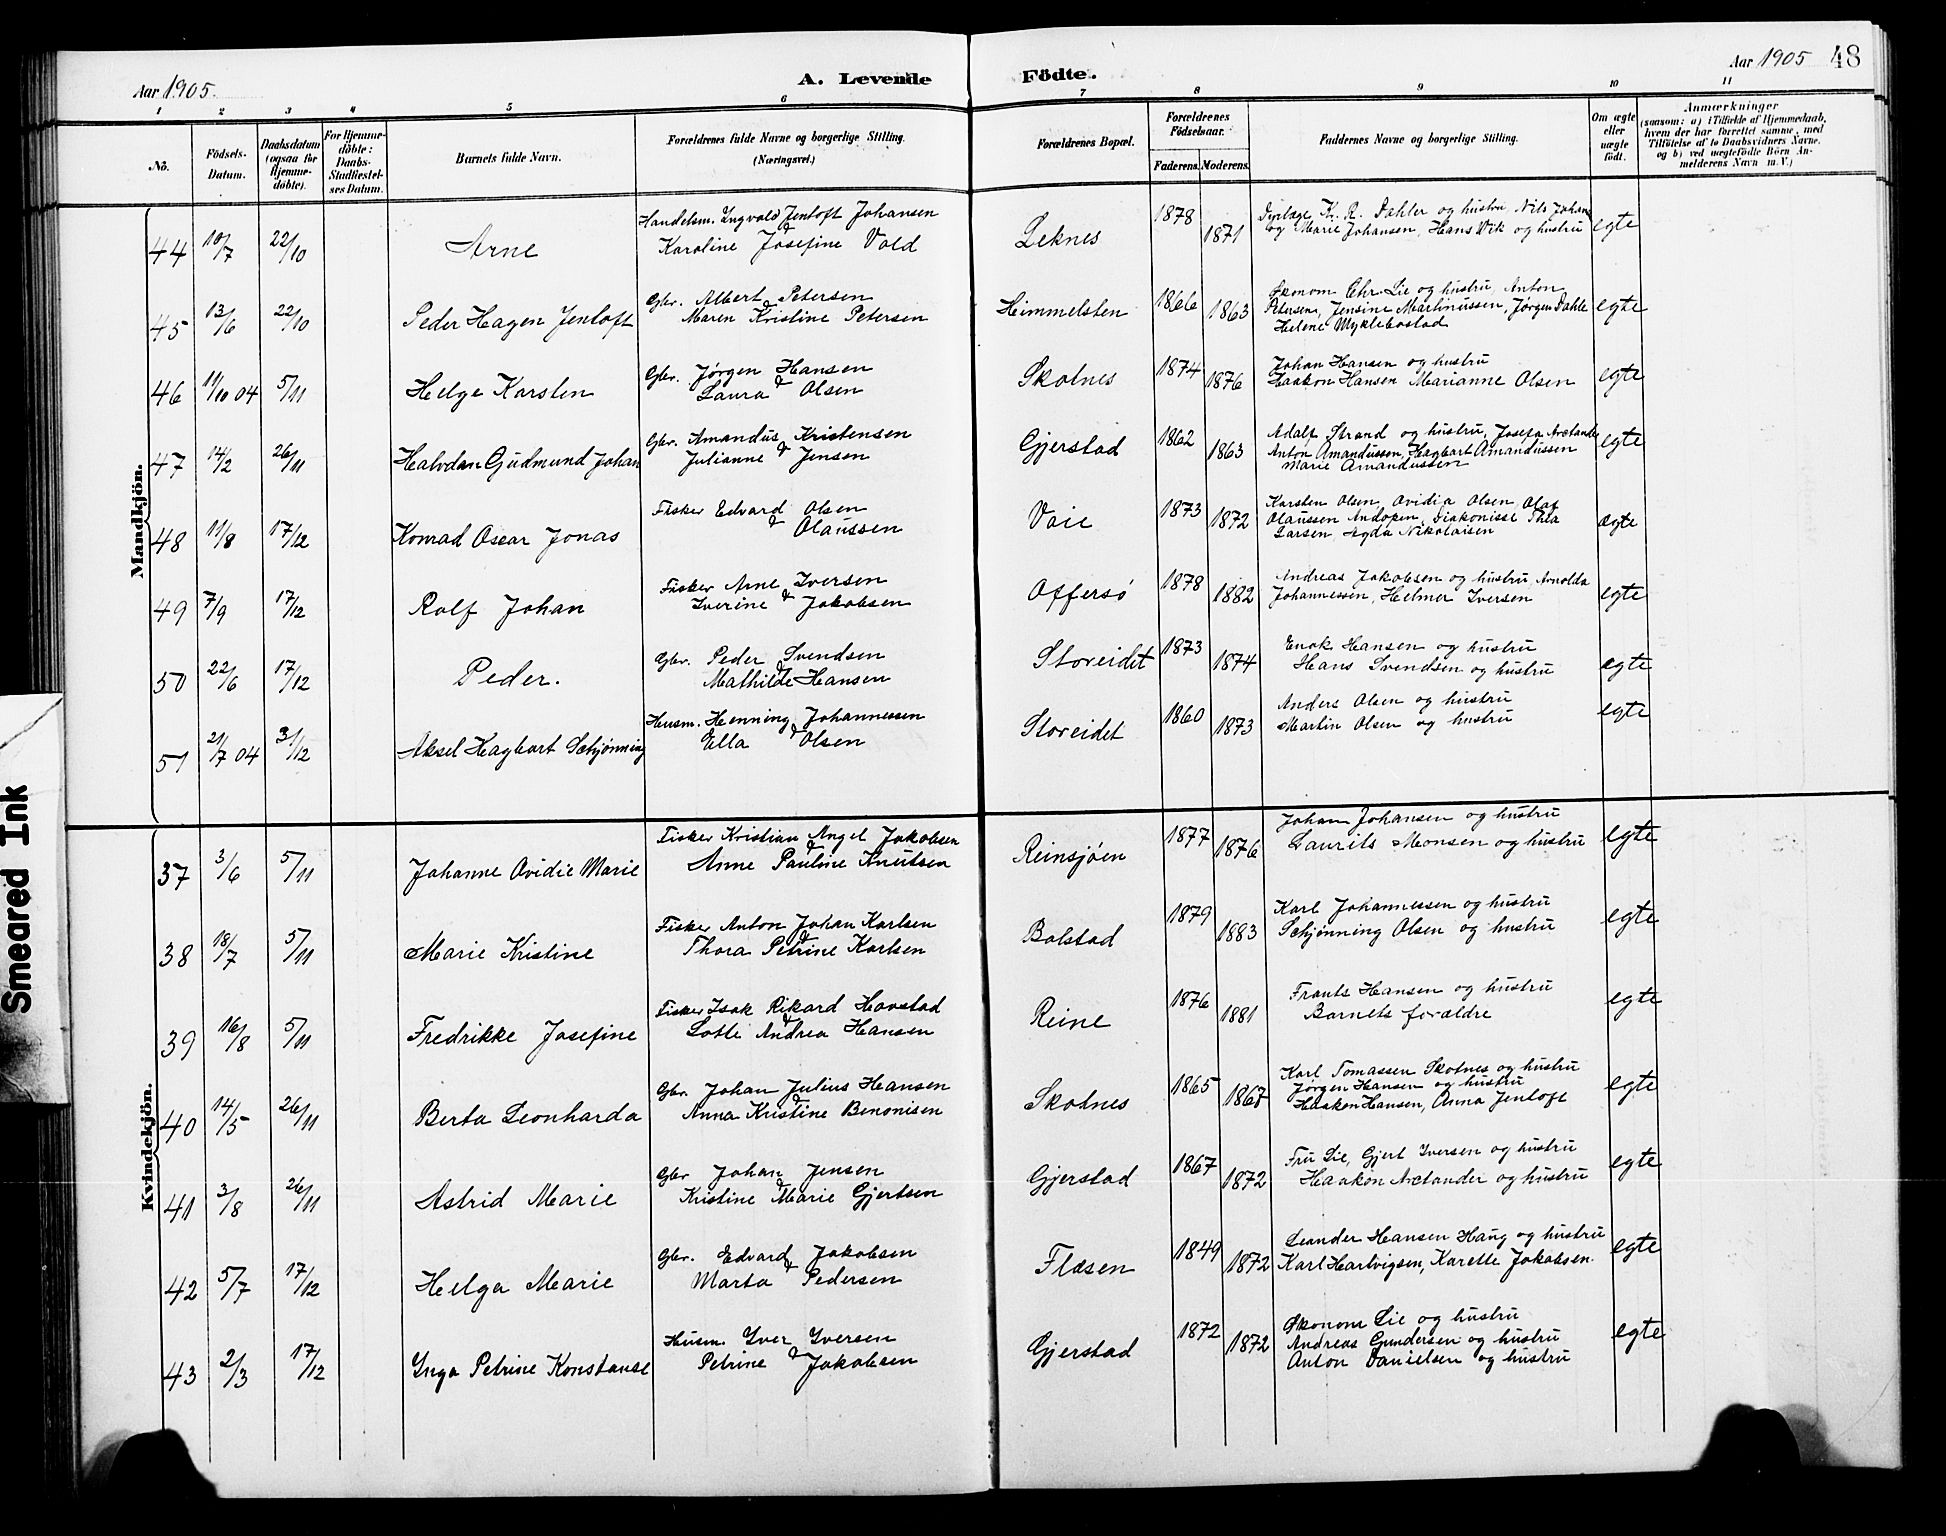 Aar 1905.
A. Levende Födte.
Aar 1905 48
1 2 3 4 5 6 7 8 9 10 11
No.
Födsels-Datum.
Daabsdatum (ogsaa för Hjemme-döbte).
For Hjemme-döbte: Daabs-Stadfæstel-ses Datum.
Barnets fulde Navn.
Forældrenes fulde Navne og borgerlige Stilling. (Næringsvei.)
Forældrenes Bopæl.
Forældrenes Födselsaar.
Faderens. Moderens.
Faddernes Navne og borgerlige Stilling.
Om ægte eller uægte födt.
Anmærkninger
(saasom: a) i Tilfælde af Hjemmedaab,
hvem der har forrettet samme, med
Tilföielse af to Daabsvidners Navne,
og b) ved uægtefödte Börn An-
melderens Navn m. V.)
Mandkjön.
44 10/7 22/10 Arne Handelsm. Ingvald Jentoft Johansen & Karoline Josefine Vold Leknes 1878 1871 K. R. Dahler og hustru Nils Johan og Marie Johansen, Hans Vik og hustru egte
45 13/6 22/10 Peder Hagen Jentoft Gbr. Albert Petersen & Maren Kristine Petersen Himmelsten 1866 1863 Økonom Chr. Lie og hustru, Anton Petersen, Jensine Martinussen, Jørgen Dahle Helene Myklebostad egte
46 11/10 04 5/11 Helge Karsten Gbr. Jørgen Hansen & Laura Olsen Skotnes 1874 1876 Johan Hansen og hustru Haakon Hansen Marianne Olsen egte
47 14/2 26/11 Halvdan Gudmund Johan Gbr. Amandus Kristensen & Julianne Jensen Gjerstad 1862 1863 Adolf Strand og hustru, Josefa Arctander Anton Amandussen, Hagbart Amandussen Marie Amandussen egte
48 11/8 17/12 Konrad Oscar Jonas Fisker Edvard Olsen & Olaussen Vaie 1873 1872 Karsten Olsen, Ovidia Olsen Olaf Olaussen Andopen, Diakonisse Thea Larsen, Agda Nikolaisen ægte
49 7/9 17/12 Rolf Johan Fisker Arne Iversen & Iverine Jakobsen Offersø 1878 1882 Andreas Jakobsen og hustru, Arnolda Johannessen, Helmer Iversen egte
50 22/6 17/12 Peder. Gbr. Peder Svendsen & Mathilde Hansen Storeidet 1873 1874 Enok Hansen og hustru Hans Svendsen og hustru ægte
51 21/7 04 31/12 Aksel Hagbart Schjønning Husm. Henning Johannessen & Ella Olsen Storeidet 1860 1873 Anders Olsen og hustru Martin Olsen og hustru egte
Kvindekjön.
37 3/6 5/11 Johanne Ovidie Marie Fisker Kristian Angel Jakobsen & Anne Pauline Knutsen Reinsjøen 1877 1876 Johan Johansen og hustru Laurits Monsen og hustru egte
38 18/7 5/11 Marie Kristine Fisker Anton Johan Karlsen & Thora Petrine Karlsen Bolstad 1879 1883 Karl Johannessen og hustru Schjønning Olsen og hustru egte
39 16/8 5/11 Fredrikke Josefine Fisker Isak Rikard Havstad & Lotte Andrea Hansen Reine 1876 1881 Frants Hansen og hustru Barnets forældre egte
40 14/5 26/11 Berta Leonharda Gbr. Johan Julius Hansen & Anna Kristine Benonisen Skotnes 1865 1867 Karl Tomassen Skotnes og hustru Jørgen Hansen og hustru Haakon Hansen, Anna Jentoft egte
41 3/8 26/11 Astrid Marie Gbr Johan Jensen & Kristine Marie Gjertsen Gjerstad 1867 1872 Fru Lie, Gjert Iversen og hustru Haakon Arctander og hustru egte
42 5/7 17/12 Helga Marie Gbr. Edvard Jakobsen & Marta Pedersen Flæsen 1849 1872 Leander Hansen Haug og hustru Karl Hartvigsen, Karette Jakobsen. egte
43 2/3 17/12 Inga Petrine Konstanse Husm. Iver Iversen & Petrine Jakobsen Gjerstad 1872 1872 Økonom Lie og hustru Andreas Gundersen og hustru Anton Danielsen og hustru egte
Smeared Ink